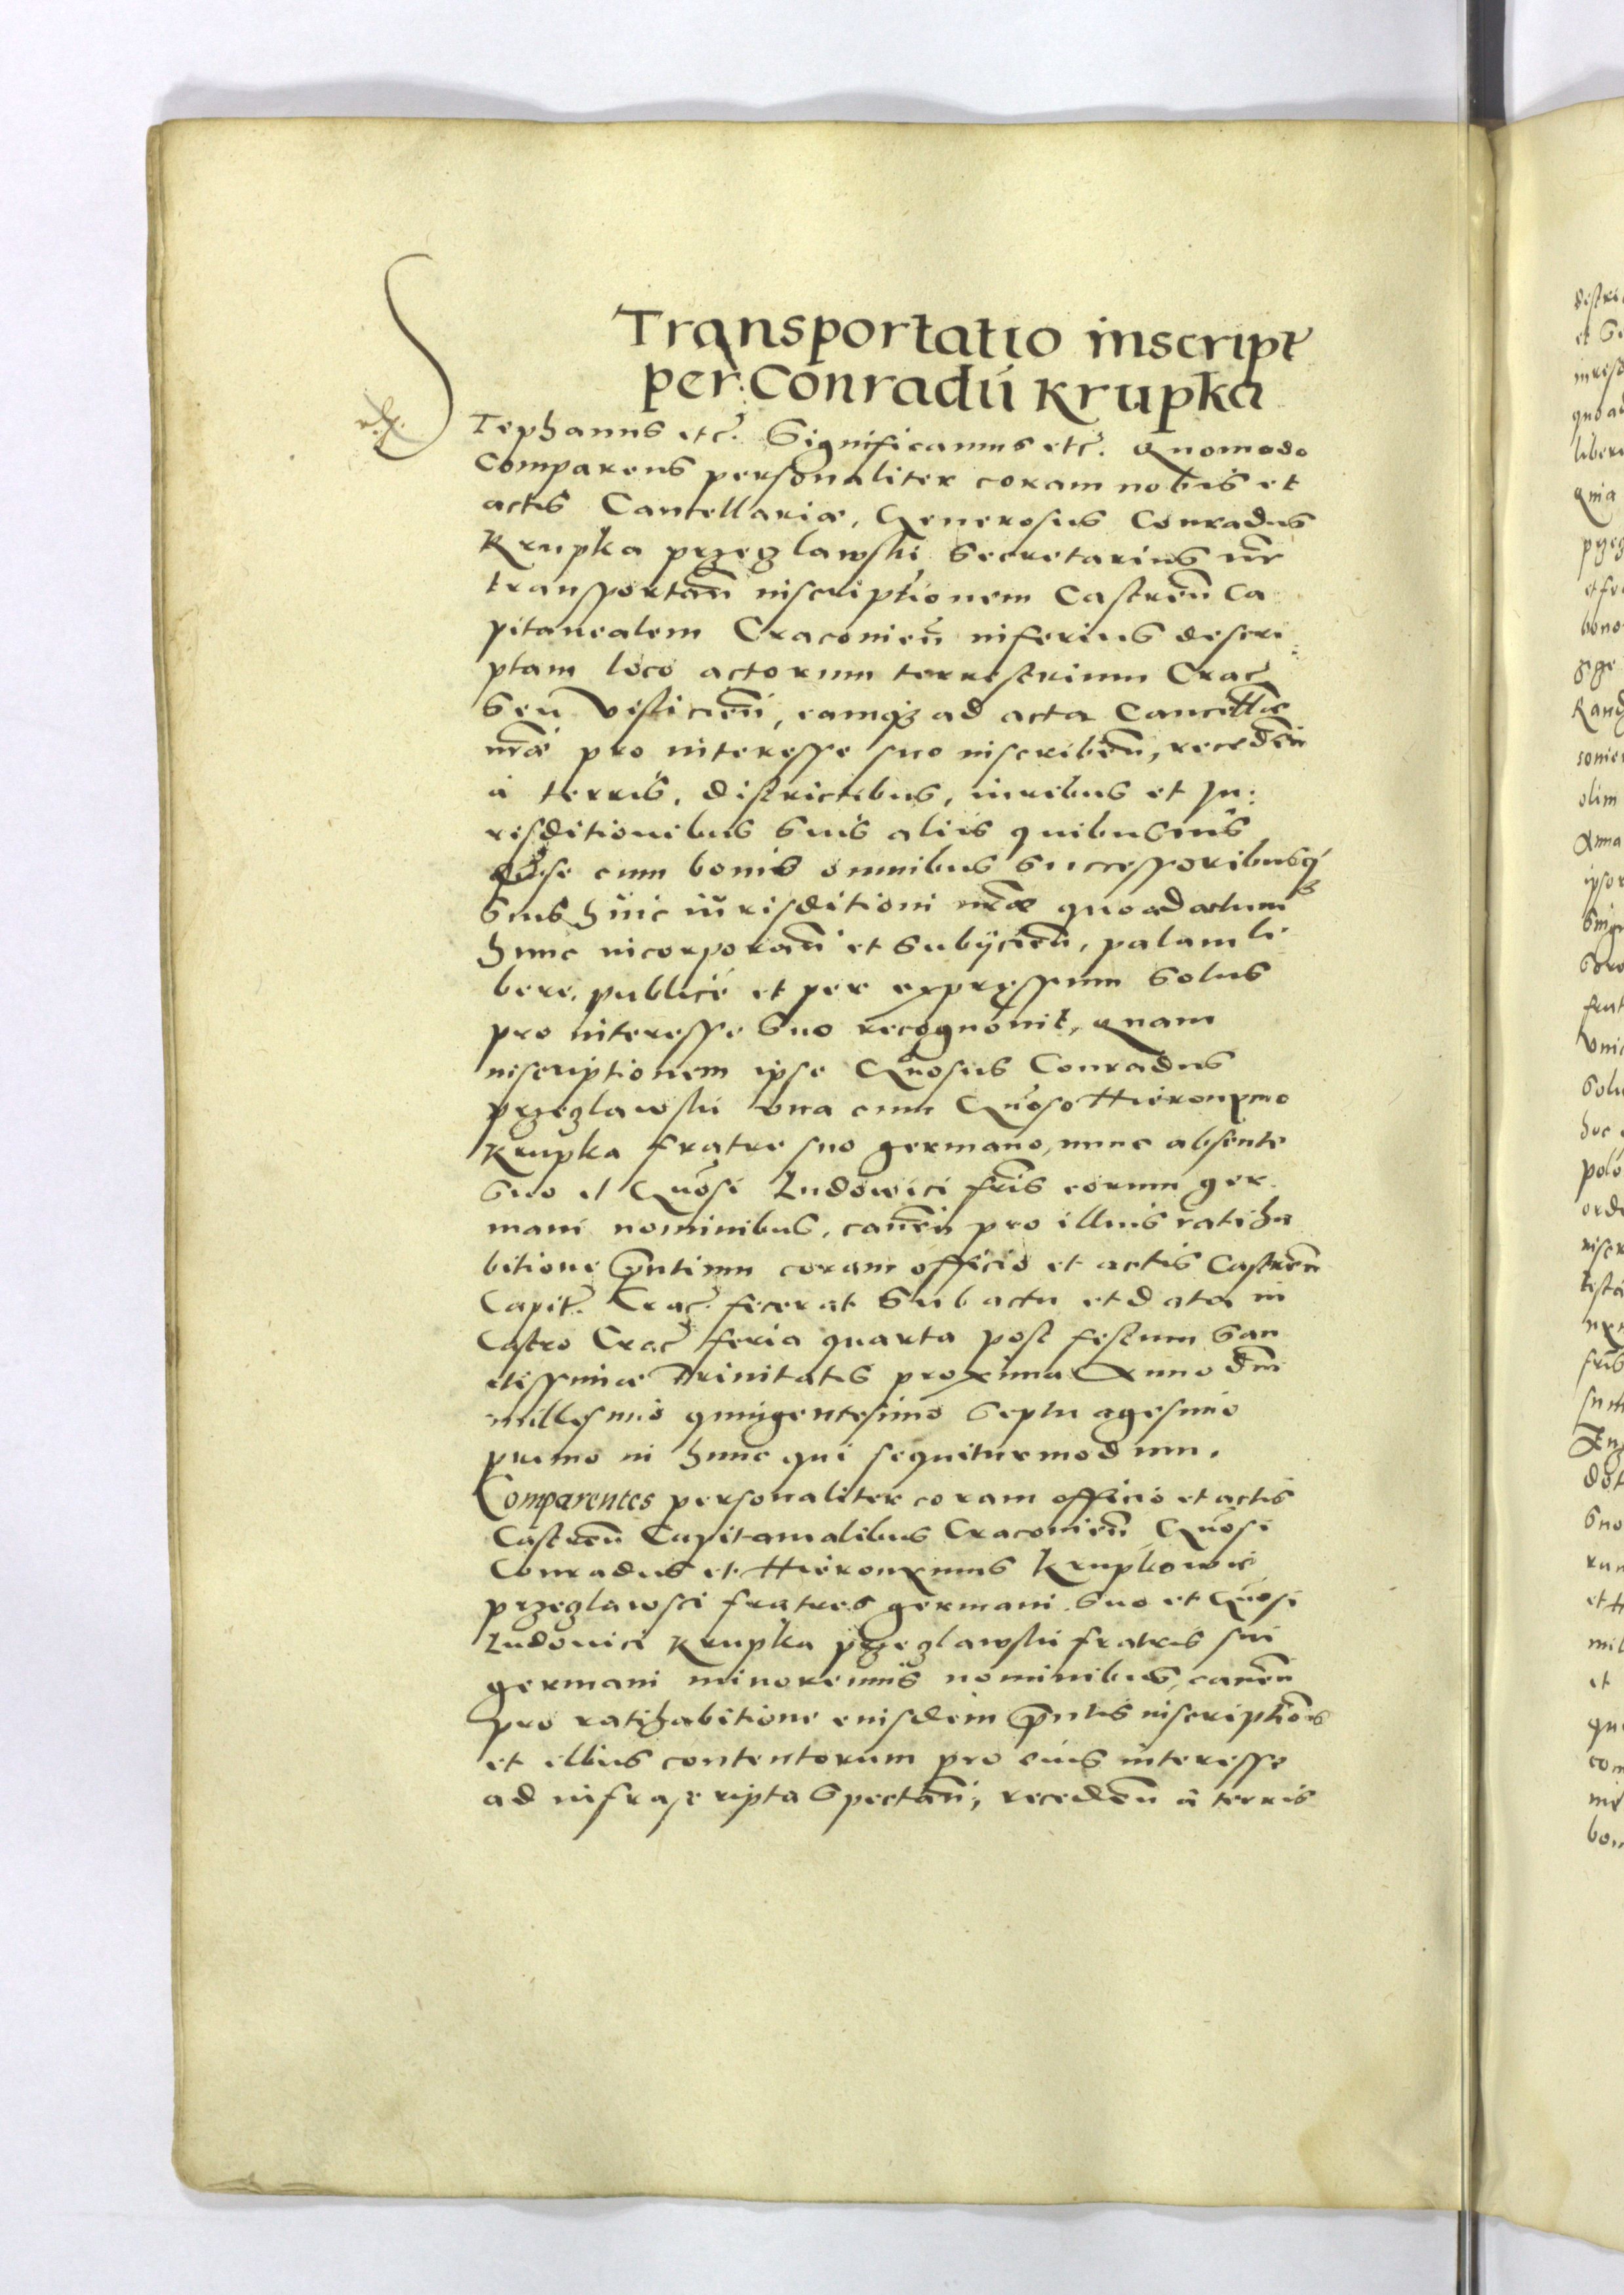 Transportatio inscript
per Conradū Krupka
STephanus etc. Significamus etc. Quomodo
Comparens personaliter coram nobis et
actis Cancellariæ, Generosus Conradus
Krupka przeglawski Secretarius nr̄
transportan̄ inscriptionem Castren̄ Ca
pitanealem Cracovien̄ inferius descri:
ptam loco actorum terrestrium Crac
seu Vislicien̄, eamq3 ad acta Cancellæ
nr̄æ pro interesse suo inscriben̄, receden̄
à terris, districtibus, iuribus et Ju:
risditionibus suis aliis quibusvis
se cum bonis omnibus successoribusq3
suis huic iurisditioni nr̄æ quoad actum
hunc incorporan̄ et subijcien̄, palam li
bere, publicè et per expressum solus
pro interesse suo recognovit, Quam
inscriptionem ipse Gn̄osus Conradus
przeglawski una cum Gn̄oso Hieronymo
Krupka fratre suo germano, nunc absente
suo et Gn̄osi Ludowici fr̄is eorum ger
mani nominibus, caven̄ pro illius ratiha
bitione pn̄tium coram officio et actis Castren̄
Capit. Crac. fecerat sub actu et data in
Castro Crac feria quarta post festum San
ctissimæ Trinitatis proxima Anno Dn̄i
millesimo quingentesimo septuagesimo
primo in hunc qui sequitur modum.
Comparentes personaliter coram officio et actis
Castren̄ Capitanealibus Cracovien̄ Gn̄osi
Conradus et Hieronymus Krupkowie
przeglawsci fratres germani suo et Gn̄osi
Ludovici Krupka przeglawski fratris sui
germani minorennis nominibus, caven̄
pro ratihabitione eiusdem pn̄tis inscriptio͞is
et illius contentorum pro eius interesse
ad infrascripta spectan̄, receden̄ à terris